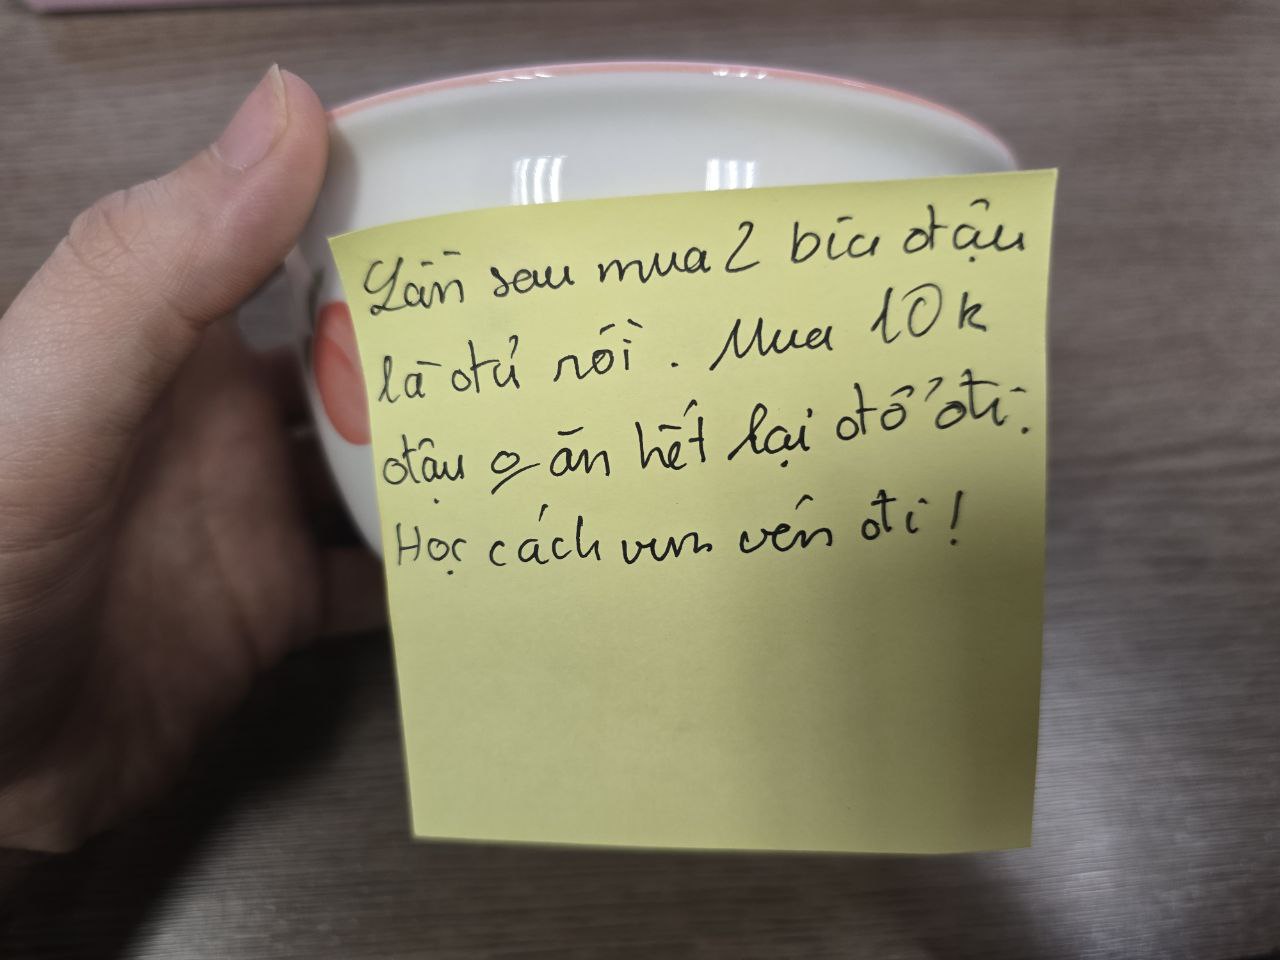 Lần sau mua 2 bìa đậu
là đủ rồi. Mua 10k
đậu ko ăn hết lại đổ đi.
Học cách vun vén đi!